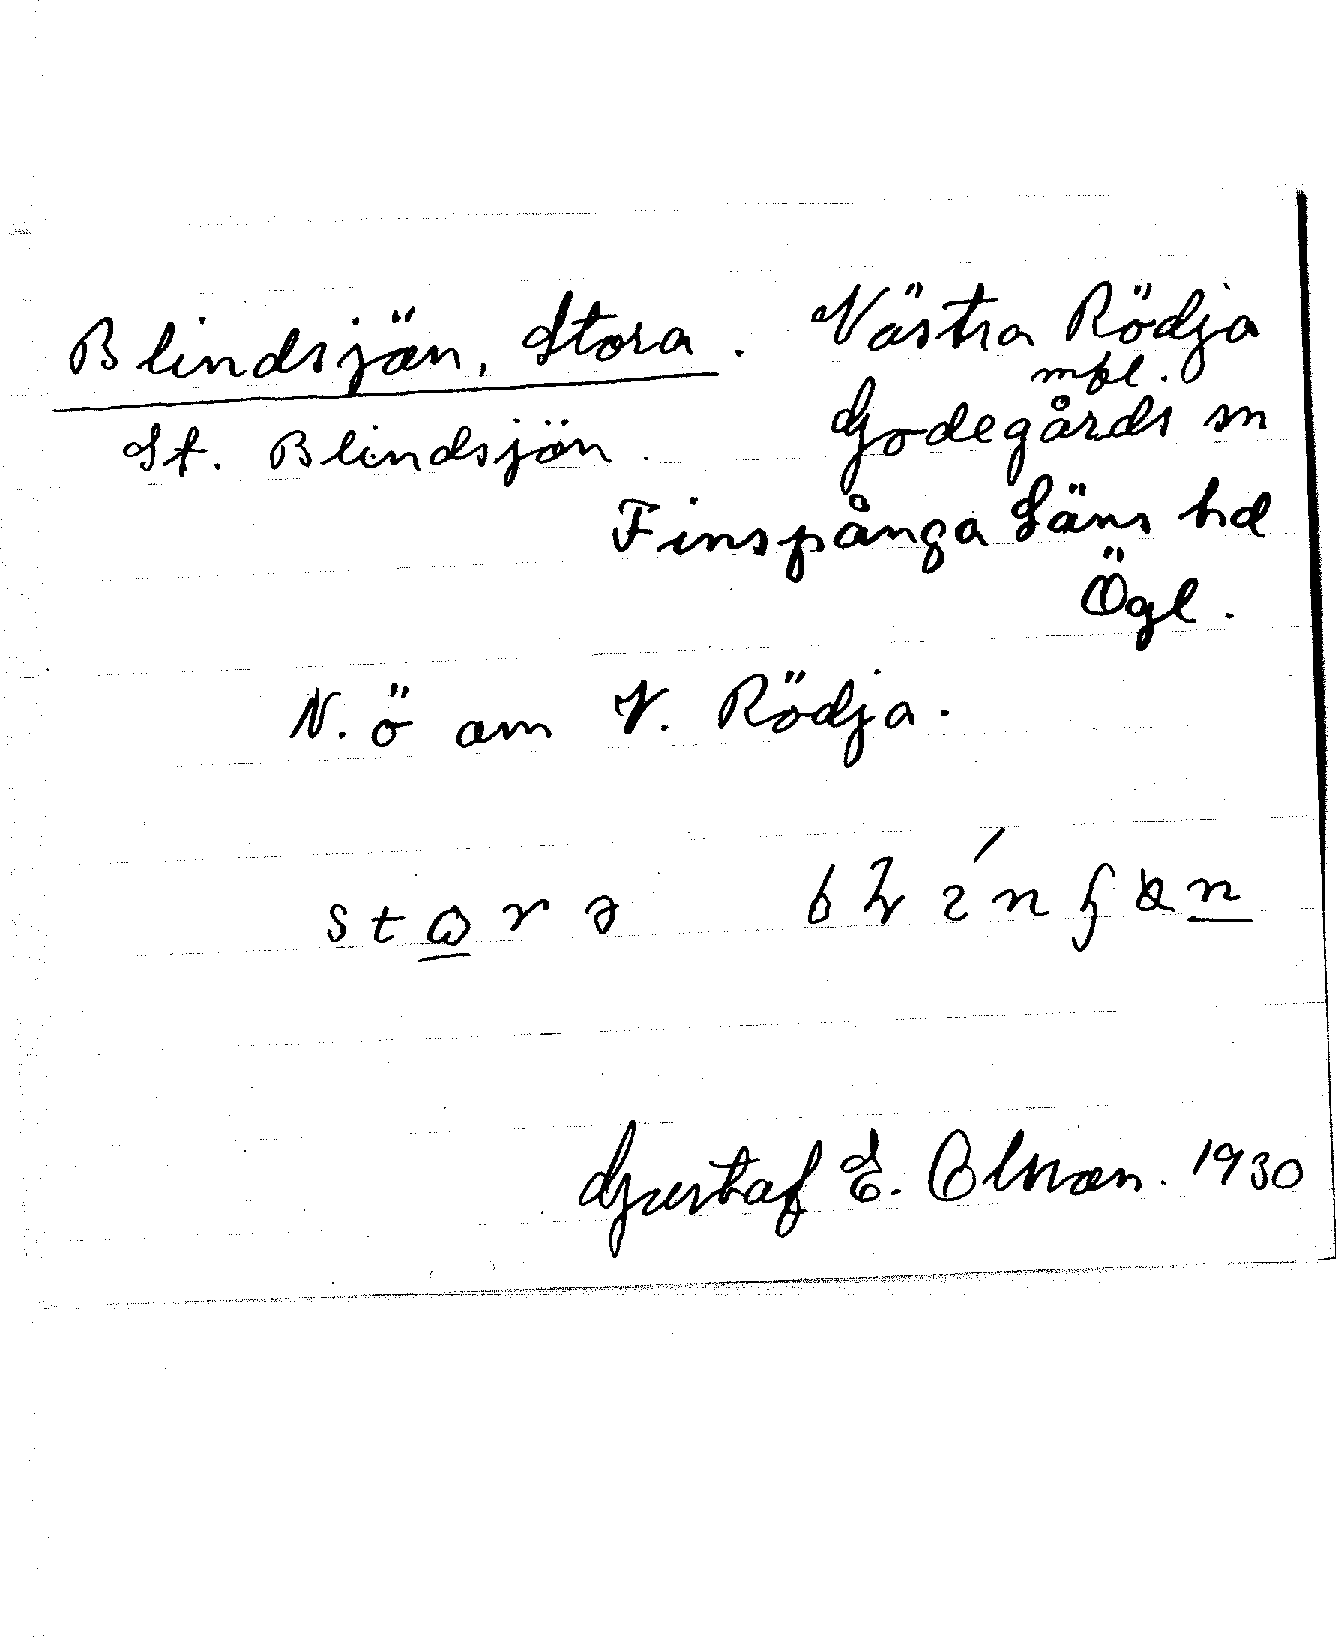 Blindsjön, Stora. Västra Rödja
mfl.
St. Blindsjön. Godegårds sn
Finspånga Läns hd
Ögl.
N.ö om V. Rödja.
Gustaf E. Olsson. 1930